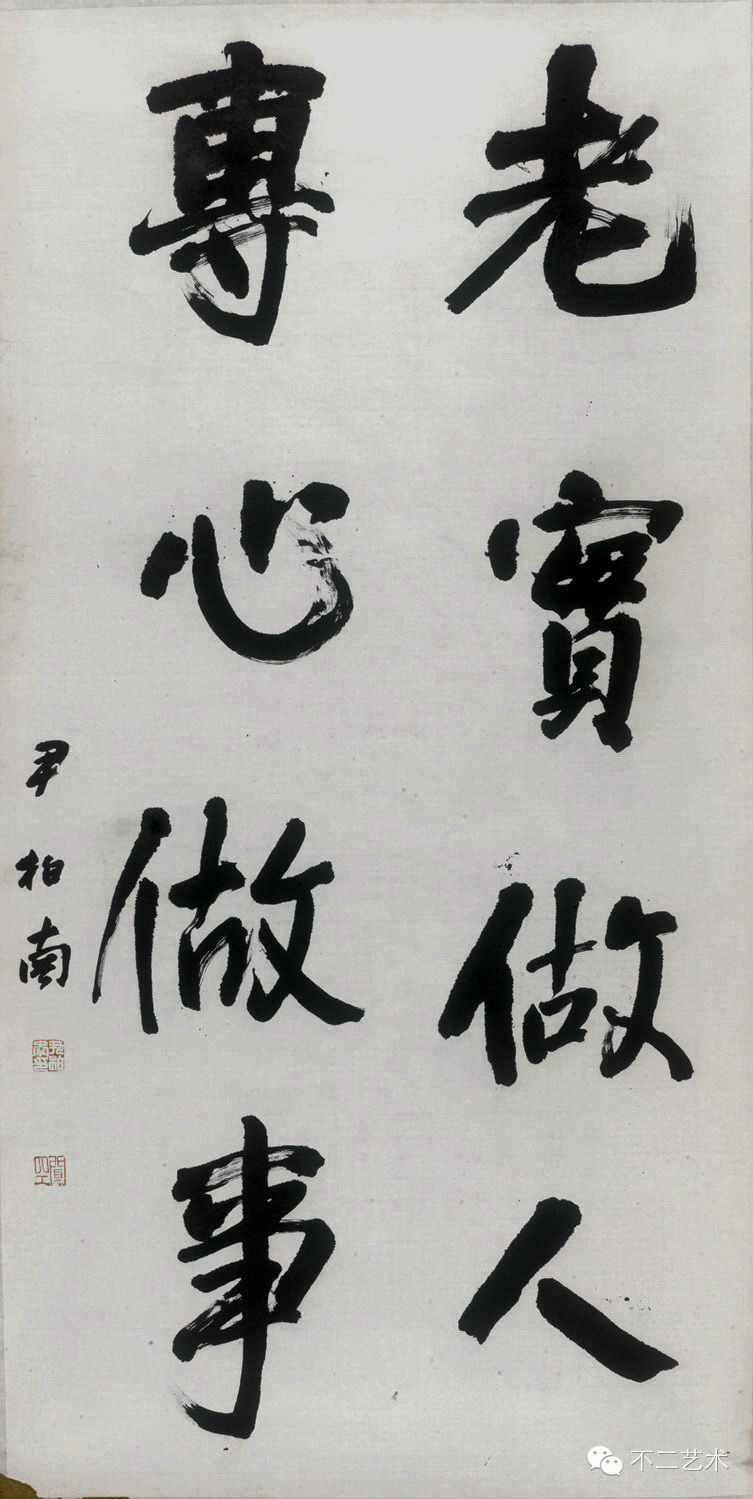 老實做人
專心做事
尹柏南
不二艺术